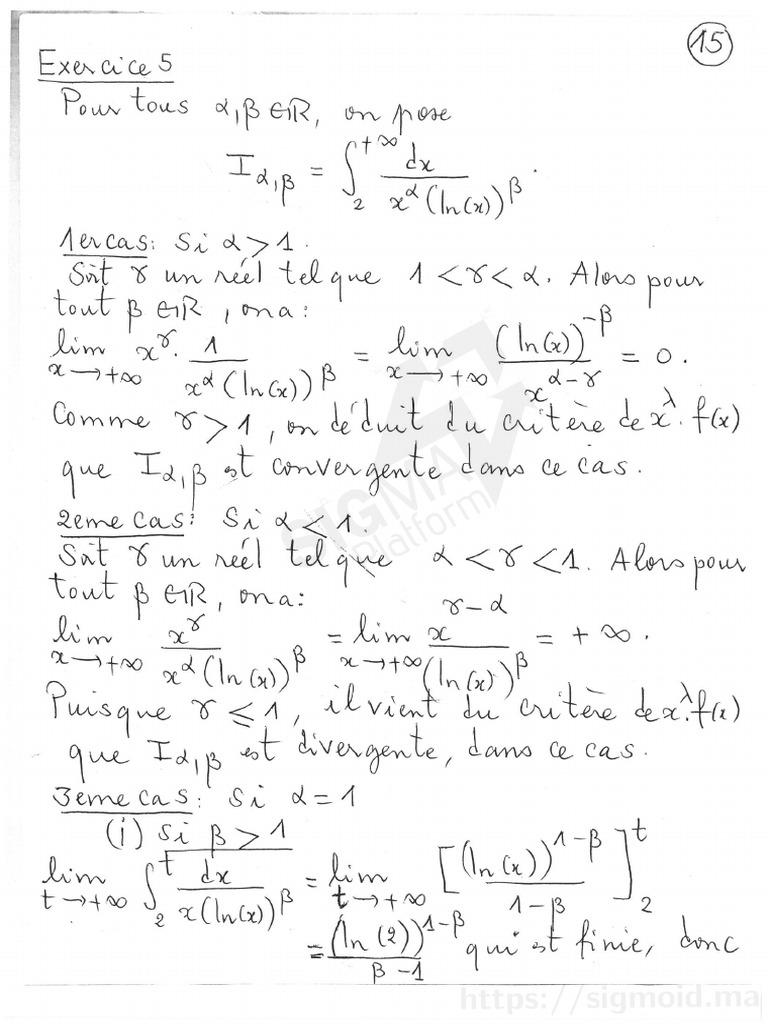 15
Exercice 5
Pour tous α,β ∈ ℝ, on pose
I_{α,β} = ∫_2^{+∞} dx / (x^α (ln(x))^β).
1er cas: Si α > 1.
Soit γ un réel tel que 1 < γ < α. Alors pour
tout β ∈ ℝ, on a:
lim_{x→+∞} x^γ · 1 / (x^α (ln(x))^β) = lim_{x→+∞} (ln(x))^{-β} / x^{α-γ} = 0.
Comme γ > 1, on déduit du critère de x^λ.f(x)
que I_{α,β} est convergente dans ce cas.
2eme cas: Si α < 1.
Soit γ un réel tel que α < γ < 1. Alors pour
tout β ∈ ℝ, on a:
lim_{x→+∞} x^γ / (x^α (ln(x))^β) = lim_{x→+∞} x^{γ-α} / (ln(x))^β = +∞.
Puisque γ ≤ 1, il vient du critère de x^λ.f(x)
que I_{α,β} est divergente, dans ce cas.
3eme cas: Si α = 1
(i) Si β > 1
lim_{t→+∞} ∫_2^t dx / (x(ln(x))^β) = lim_{t→+∞} [(ln(x))^{1-β} / (1-β)]_2^t
= (ln(2))^{1-β} / (β-1) qui est finie, donc
SIGMA
platform
https://sigmoid.ma